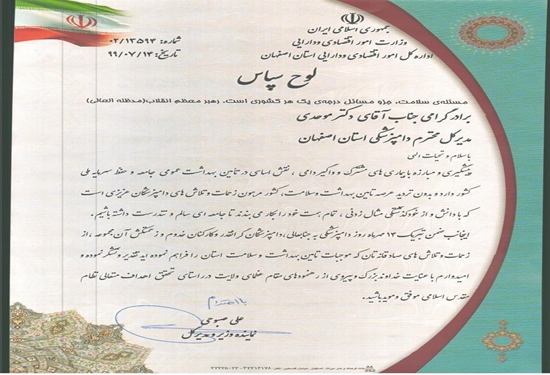 جمهوری اسلامی ایران
وزارت امور اقتصادی و دارایی
اداره کل امور اقتصادی و دارایی استان اصفهان
شماره: ۰۲/۱۳۵۹۳
تاریخ: ۹۹/۰۷/۱۴
لوح سپاس
مسئله‌ی سلامت، جزو مسائل درجه‌ی یک هر کشوری است. رهبر معظم انقلاب(مدظله العالی)
برادر گرامی جناب آقای دکتر موحدی
مدیرکل محترم دامپزشکی استان اصفهان
با سلام و تحیات الهی
پیشگیری و مبارزه با بیماری های مشترک و واگیر دامی ، نقش اساسی در تأمین بهداشت عمومی جامعه و حفظ سرمایه ملی
کشور دارد و بدون تردید عرصه تأمین بهداشت و سلامت، کشور مرهون زحمات و تلاش های دامپزشکان عزیزی است
که با دانش و از خودگذشتگی مثال زدنی ، تمام همت خود را بکار می بندند تا جامعه ای سالم و تندرست داشته باشیم.
اینجانب ضمن تبریک ۱۴ مهرماه روز دامپزشکی به جنابعالی، دامپزشکان گرانقدر و کارکنان خدوم و زحمتکش آن مجموعه، از
زحمات و تلاش های صادقانه تان که موجبات تأمین بهداشت و سلامت استان را فراهم نموده اید تقدیر و تشکر نموده و
امیدوارم با عنایت خداوند بزرگ و پیروی از رهنمودهای مقام عظمای ولایت در راستای تحقق اهداف متعالی نظام
مقدس اسلامی موفق و موید باشید.
با احترام
علی صبوحی
نماینده وزیر و مدیرکل